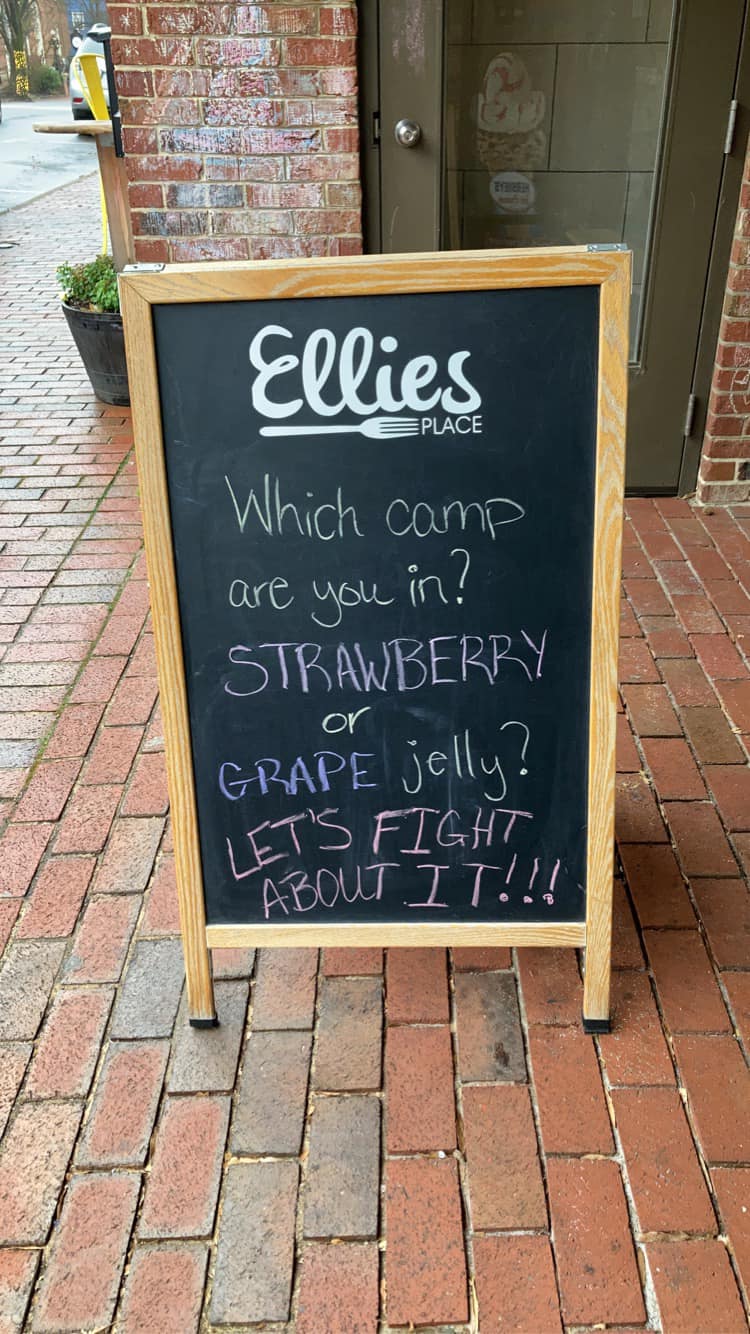 Ellies
PLACE
Which camp
are you in?
STRAWBERRY
or
GRAPE jelly?
LET'S FIGHT
ABOUT IT!!!